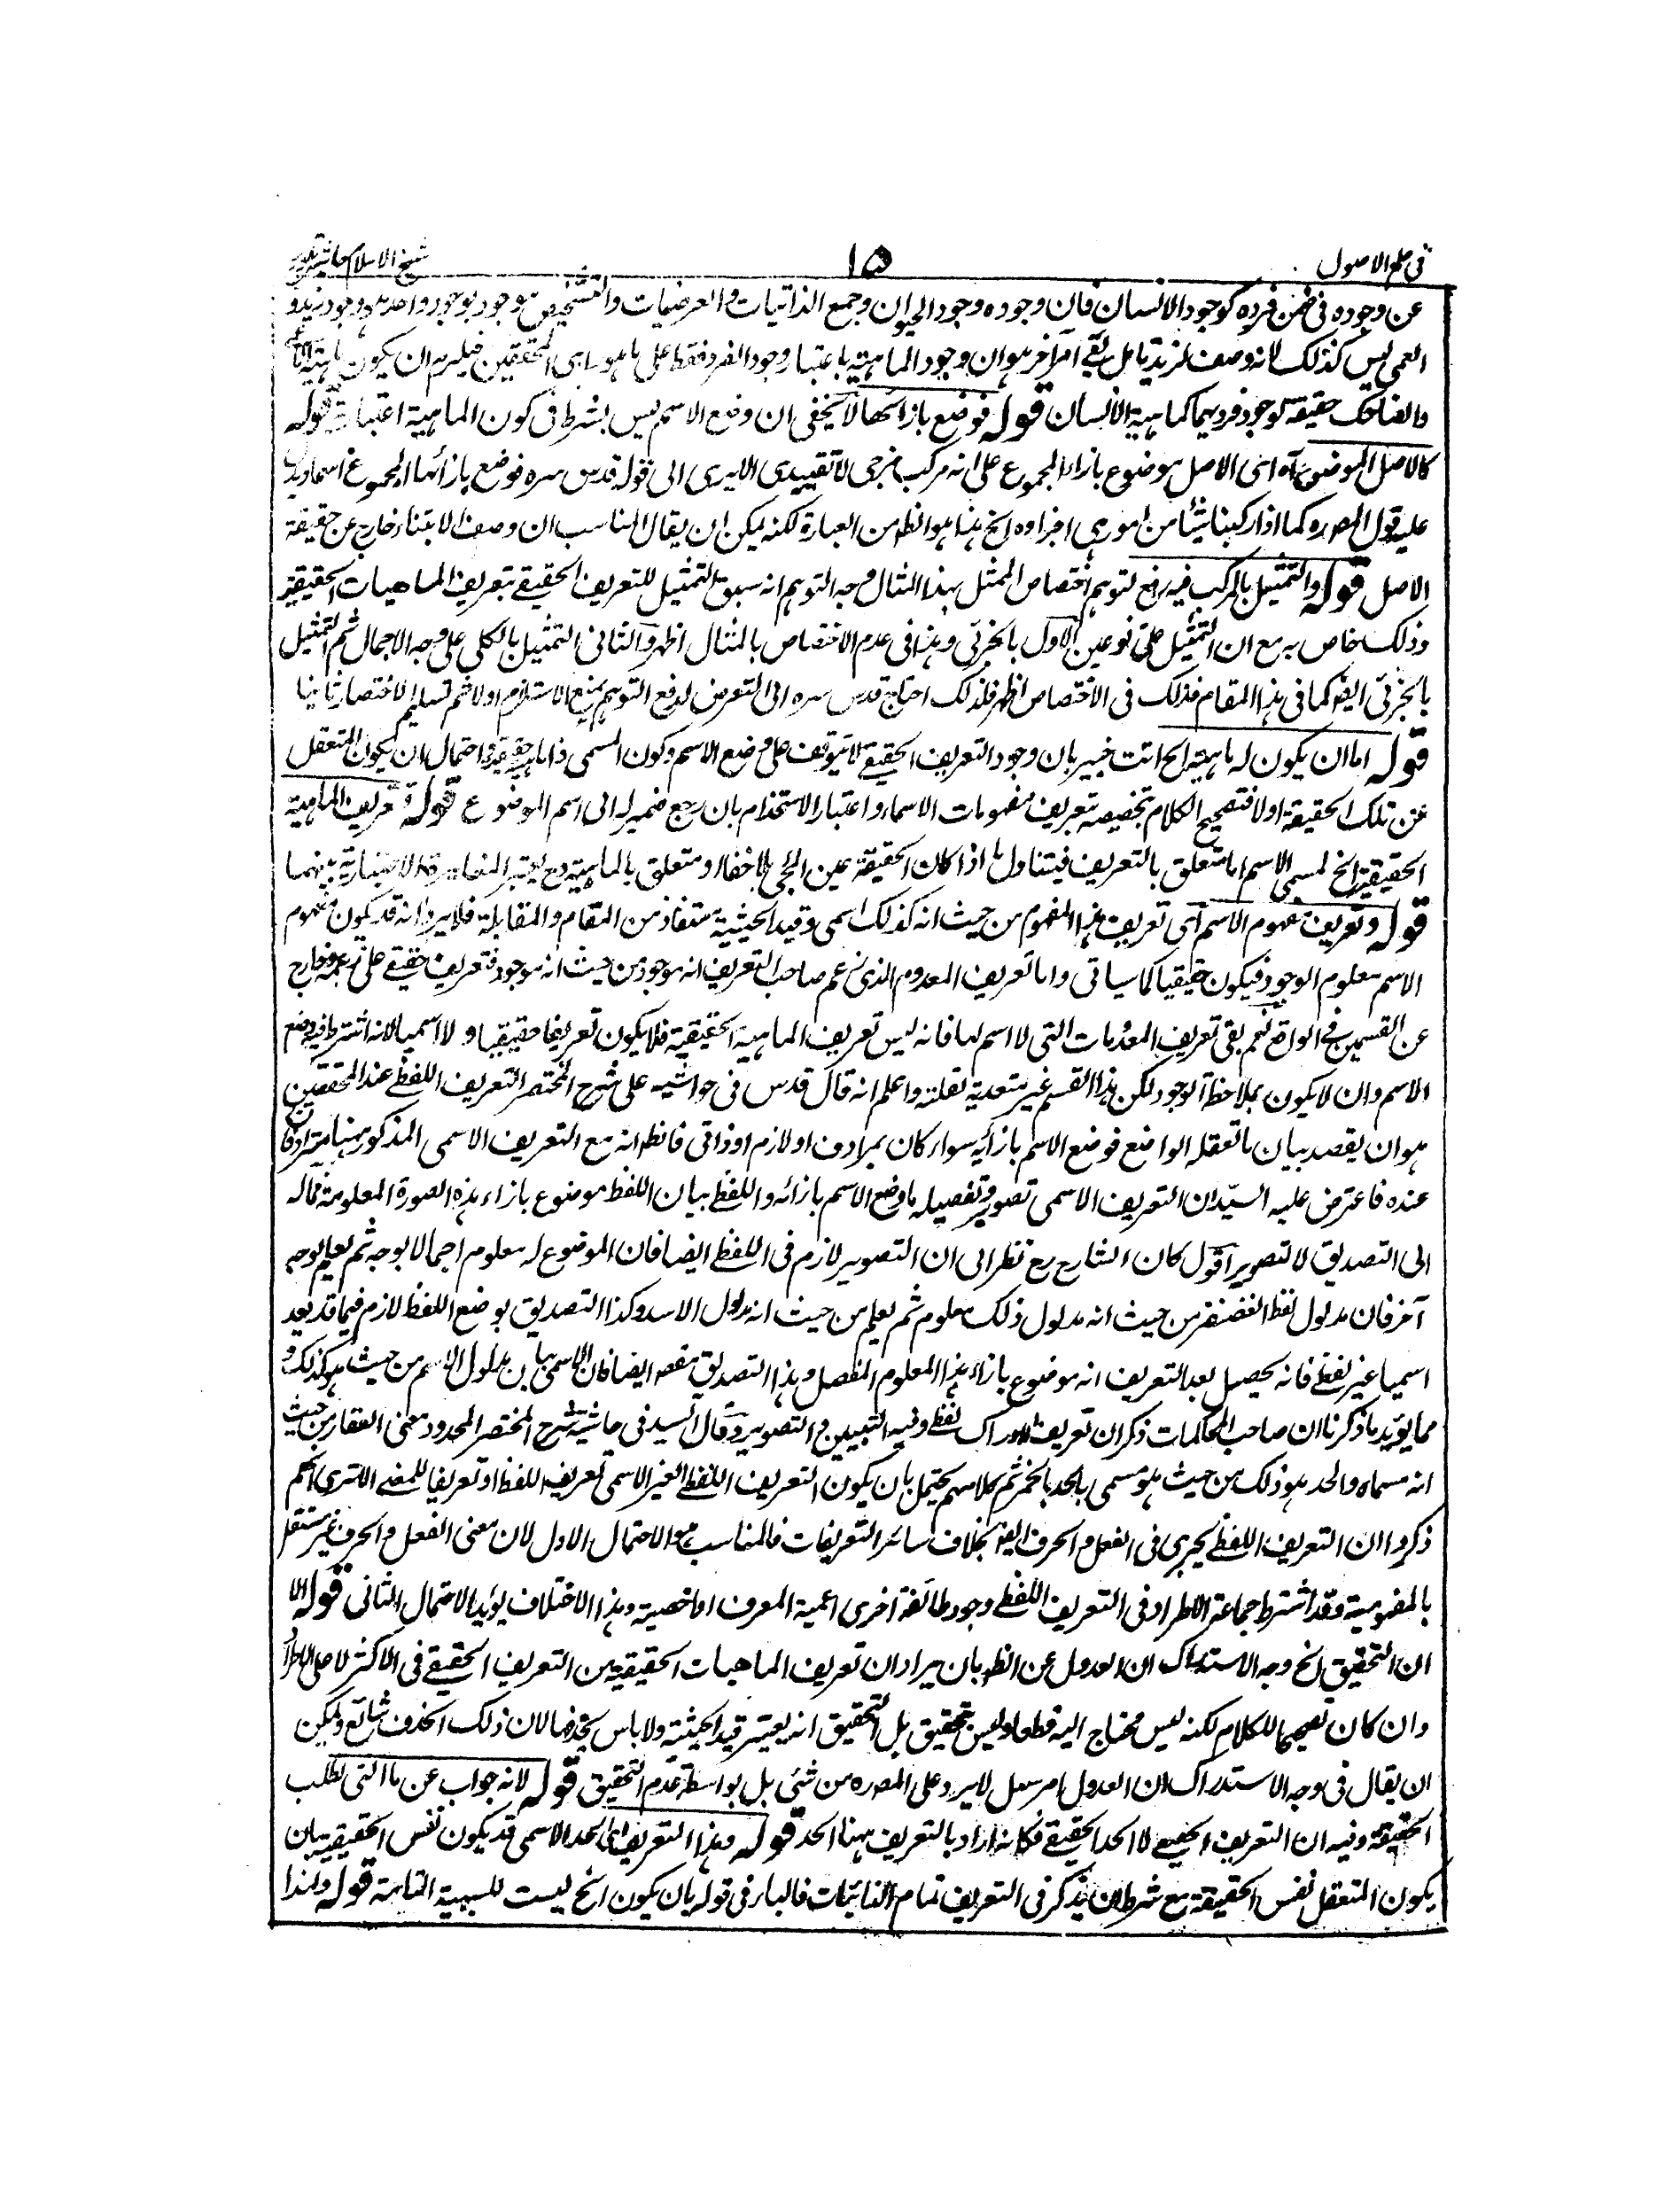 في علم الاصول
١٥
شيخ الاسلام حاشية تلويح
عن وجوده في ضمن فرده كوجود الانسان فان وجوده وجود الحيوان وجمع الذاتيات والعرضيات والتشخيص موجود بوجود واحد هو وجود زيد و
العمى ليس كذلك لانه وصف لزيد تامل بقي امر اخر هو ان وجود الماهية باعتبار وجود الفرد فقط على ما هو راى المحققين فيلزم ان يكون ماهية
والضاحك حقيقة لوجود فرديهما كماهية الانسان قوله فوضع بازائها لا يخفى ان وضع الاسم ليس بشرط في كون الماهية اعتبارية قوله
كالاصل الموضوع آه اى الاصل موضوع بازاء المجموع على انه مركب مزجى لا تقييدى الا يرى الى قوله قدس سره فوضع بازائها المجموع
عليه قول المصره كما اذا ركبنا شيئا من امور هى اجزاوه الخ هذا هو الظ من العبارة لكنه يمكن ان يقال المناسب ان وصف الابتناء خارج عن حقيقة
الاصل قوله والتمثيل بالمركب فيه رفع لتوهم اختصاص الممثل بهذا المثال وجه التوهم انه سبق التمثيل للتعريف الحقيقي بتعريف الماهيات الحقيقية
وذلك خاص به مع ان التمثيل على نوعين الاول بالجزئي وهذا في عدم الاختصاص بالمثال اظهر والثاني التمثيل بالكلى على وجه الاجمال ثم التمثيل
بالجزئي ايضا كما في هذا المقام فذلك في الاختصاص اظهر فلذلك احتاج قدس سره الى التعرض لدفع التوهم بمنع الاستلزام اولا ثم تسليم الاختصار ثانيا
قوله اما ان يكون له ماهية الخ انت خبير بان وجود التعريف الحقيقي لا يتوقف على وضع الاسم وكون المسمى ذا ماهية حقيقية واحتمال ان يكون المتعقل
عن تلك الحقيقة اولا فتصحيح الكلام تخصيصه بتعريف مفهومات الاسماء واعتبار الاستخدام بان رجع ضمير له الى اسم الموضوع قوله تعريف الماهية
الحقيقية الخ لمسمى الاسم اما متعلق بالتعريف فيتناول ما اذا كانت الحقيقة عين المجئ بلا خفاء او متعلق بالماهية وح يعتبر المغايرة الاعتبارية بينهما
قوله وتعريف مفهوم الاسم اى تعريف هذا المفهوم من حيث انه كذلك اسمى وقيد الحيثية مستفاد من المقام والمقابلة فلا يرد انه قد يكون مفهوم
الاسم معلوم الوجود فيكون حقيقيا كما سياتى واما تعريف المعدوم الذى زعم صاحب التعريف انه موجود من حيث انه موجود فتعريف حقيقي على زعمه وخارج
عن القسمين في الواقع نعم بقي تعريف المعدومات التى لا اسم لها فانه ليس تعريف الماهية الحقيقية فلا يكون تعريفا حقيقيا و لا اسميا لانه اشترط فيه وضع
الاسم وان لا يكون بملاحظة الوجود لكن هذا القسم غير متعد به لقلته واعلم انه قال قدس في حواشيه على شرح المختصر التعريف اللفظي عند المحققين
هو ان يقصد بيان ما تعقله الواضع فوضع الاسم بازائه سواء كان بمرادف او لازم او ذاتى فانظ انه مع التعريف الاسمى المذكور ههنا مترادفان
عنده فاعترض عليه السيد ان التعريف الاسمى تصوير وتفصيل ما وضع الاسم بازائه واللفظي بيان اللفظ موضوع بازاء هذه الصورة المعلومة فماله
الى التصديق لا لتصوير اقول كان الشارح رح نظر الى ان التصوير لازم في اللفظي ايضا فان الموضوع له معلوم اجمالا بوجه ثم يعلم بوجه
آخر فان مدلول لفظ الغضنفر من حيث انه مدلول ذلك معلوم ثم يعلم من حيث انه مدلول الاسد وكذا التصديق بوضع اللفظ لازم فيما قد يعد
اسميا غير لفظي فانه يحصل بعد التعريف انه موضوع بازاء هذا المعلوم المفصل وهذا التصديق مقصد ايضا فان الاسمى بيان مدلول الاسم من حيث هو كذلك و
مما يويد ما ذكرنا ان صاحب المحاكمات ذكر ان تعريف الادراك لفظي وفيه التبيين والتصوير وقال السيد في حاشية شرح المختصر المحدود معنى العقار من حيث
انه مسماه والحد هو ذلك من حيث هو مسمى بالحد بالخمر ثم كلامهم يحتمل بان يكون التعريف اللفظي الغير الاسمى تعريف اللفظ او تعريفا للمعنى الا ترى انهم
ذكروا ان التعريف اللفظي يجرى في الفعل والحرف ايضا بخلاف سائر التعريفات فالمناسب هو الاحتمال الاول لان معنى الفعل والحرف غير مستقل
بالمفهومية وقد اشترط جماعة الاطراد في التعريف اللفظي وجوز طائفة اخرى اعمية المعرف او اخصيته وهذا الاختلاف يويد الاحتمال الثاني قوله الا
ان التحقيق الخ وجه الاستدراك ان العدول عن الظ بان يراد ان تعريف الماهيات الحقيقية من التعريف الحقيقي في الاكثر لا على الاطراد
وان كان تصحيحا للكلام لكنه ليس محتاج اليه قطعا وليس تحقيق بل التحقيق انه يعتبر قيد الحيثية ولا باس بحذفها لان ذلك الحذف شائع ويمكن
ان يقال في وجه الاستدراك ان العدول امر سهل لا يرد على المصره من شئ بل بواسطة عدم التحقيق قوله لانه جواب عن ما التى لطلب
الحقيقة وفيه ان التعريف الحقيقي لا الحد الحقيقي فكانه اراد بالتعريف ههنا الحد قوله وهذا التعريف اى الحد الاسمى قد يكون نفس الحقيقة بان
يكون المتعقل نفس الحقيقة مع شرط ان يذكر في التعريف تمام الذاتيات فالباء في قوله بان يكون الخ ليست للسببية التامة قوله ولهذا